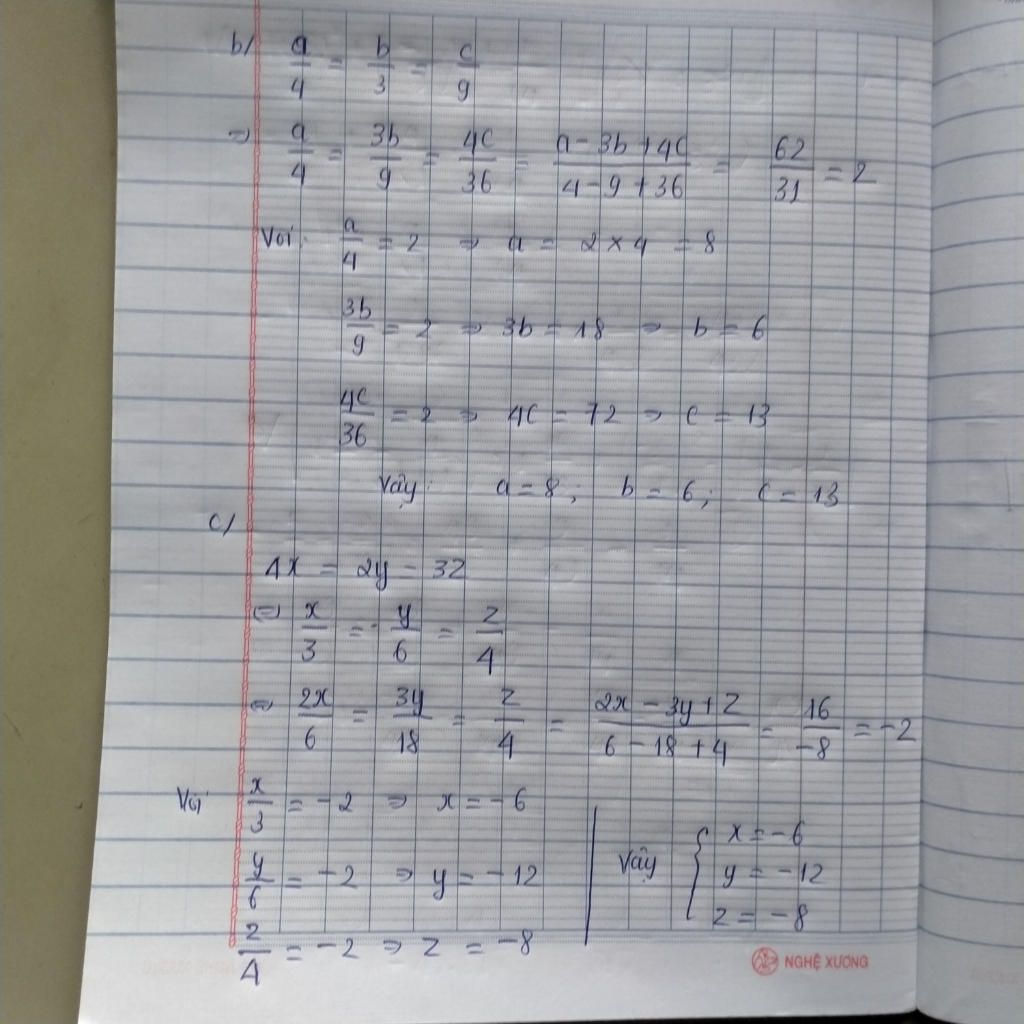 b/ a/4 = b/3 = c/9
=> a/4 = 3b/9 = 4c/36 = (a - 3b + 4c)/(4 - 9 + 36) = 62/31 = 2
Với a/4 = 2 => a = 2 × 4 = 8
3b/9 = 2 => 3b = 18 => b = 6
4c/36 = 2 => 4c = 72 => c = 13
Vậy a = 8; b = 6; c = 13
c/
4x = 2y = 3z
<=> x/3 = y/6 = z/4
<=> 2x/6 = 3y/18 = z/4 = (2x - 3y + z)/(6 - 18 + 4) = 16/-8 = -2
Với x/3 = -2 => x = -6
y/6 = -2 => y = -12
z/4 = -2 => z = -8
Vậy { x = -6
y = -12
z = -8
NGHỆ XƯƠNG